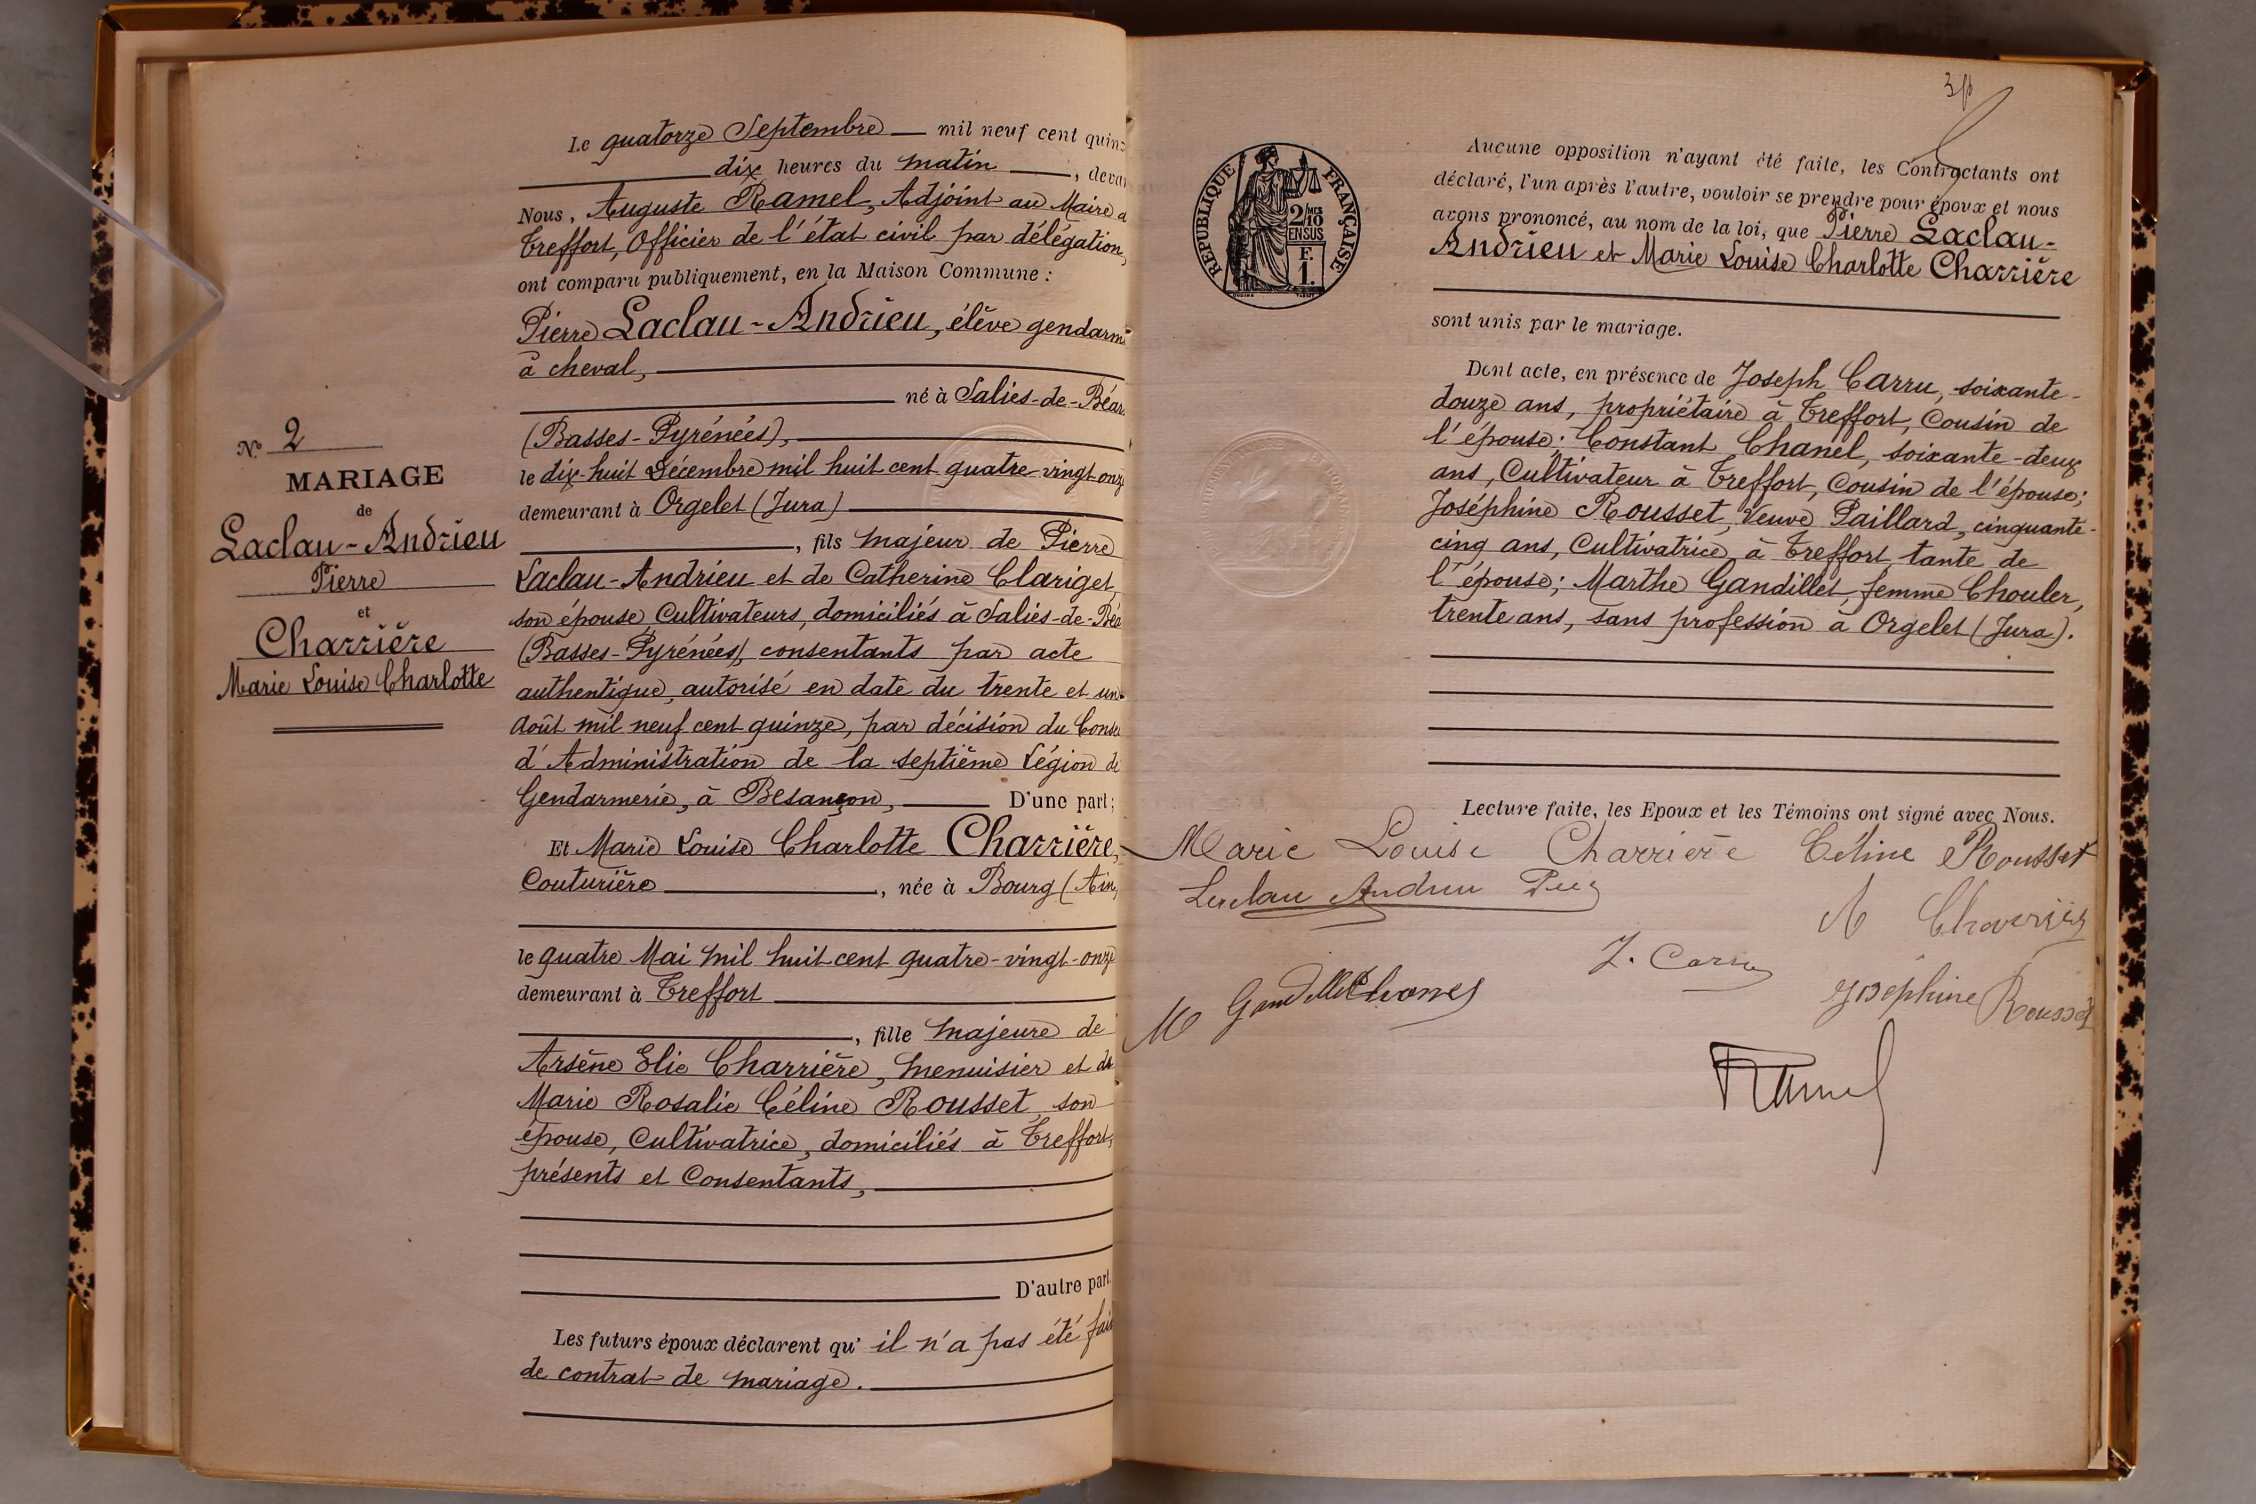 Le quatorze Septembre mil neuf cent quinz
dix heures du matin, devan
Nous, Auguste Ramel, Adjoint au Maire d
Treffort, Officier de l'état civil par délégation,
ont comparu publiquement, en la Maison Commune :
Pierre Laclau-Andrieu, élève gendarm
à cheval,
né à Salies-de-Béar
(Basses-Pyrénées),
le dix-huit Décembre mil huit cent quatre-vingt-onz
demeurant à Orgelet (Jura)
, fils majeur de Pierre
Laclau-Andrieu et de Catherine Clariget,
son épouse, Cultivateurs, domiciliés à Salies-de-Béa
(Basses-Pyrénées), consentants par acte
authentique, autorisé en date du trente et un
Août mil neuf cent quinze, par décision du Conse
d'Administration de la septième Légion de
Gendarmerie, à Besançon, D'une part;
Et Marie Louise Charlotte Charrière,
Couturière, née à Bourg (Ain)
le quatre Mai mil huit cent quatre-vingt-onze
demeurant à Treffort
, fille majeure de
Arsène Elie Charrière, menuisier et de
Marie Rosalie Céline Rousset, son
épouse, Cultivatrice, domiciliés à Treffort,
présents et Consentants,
D'autre part.
Les futurs époux déclarent qu'il n'a pas été fait
de contrat de mariage.
N° 2
MARIAGE
de
Laclau-Andrieu
Pierre
et
Charrière
Marie Louise Charlotte
RÉPUBLIQUE FRANÇAISE
2/MES
10
EN SUS
F.
1.
Aucune opposition n'ayant été faite, les Contractants ont
déclaré, l'un après l'autre, vouloir se prendre pour époux et nous
avons prononcé, au nom de la loi, que Pierre Laclau-
Andrieu et Marie Louise Charlotte Charrière
sont unis par le mariage.
Dont acte, en présence de Joseph Carru, soixante-
douze ans, propriétaire à Treffort, Cousin de
l'épouse; Constant Chanel, soixante-deux
ans, Cultivateur à Treffort, Cousin de l'épouse;
Joséphine Rousset, Veuve Paillard, cinquante-
cinq ans, Cultivatrice, à Treffort, tante de
l'épouse; Marthe Gandillet, femme Chouler,
trente ans, sans profession à Orgelet (Jura).
Lecture faite, les Epoux et les Témoins ont signé avec Nous.
Marie Louise Charrière Céline Rousset
Andrieu
A Charrière
J. Carru
M Gandillet Chanel
Joséphine Rousset
Ramel